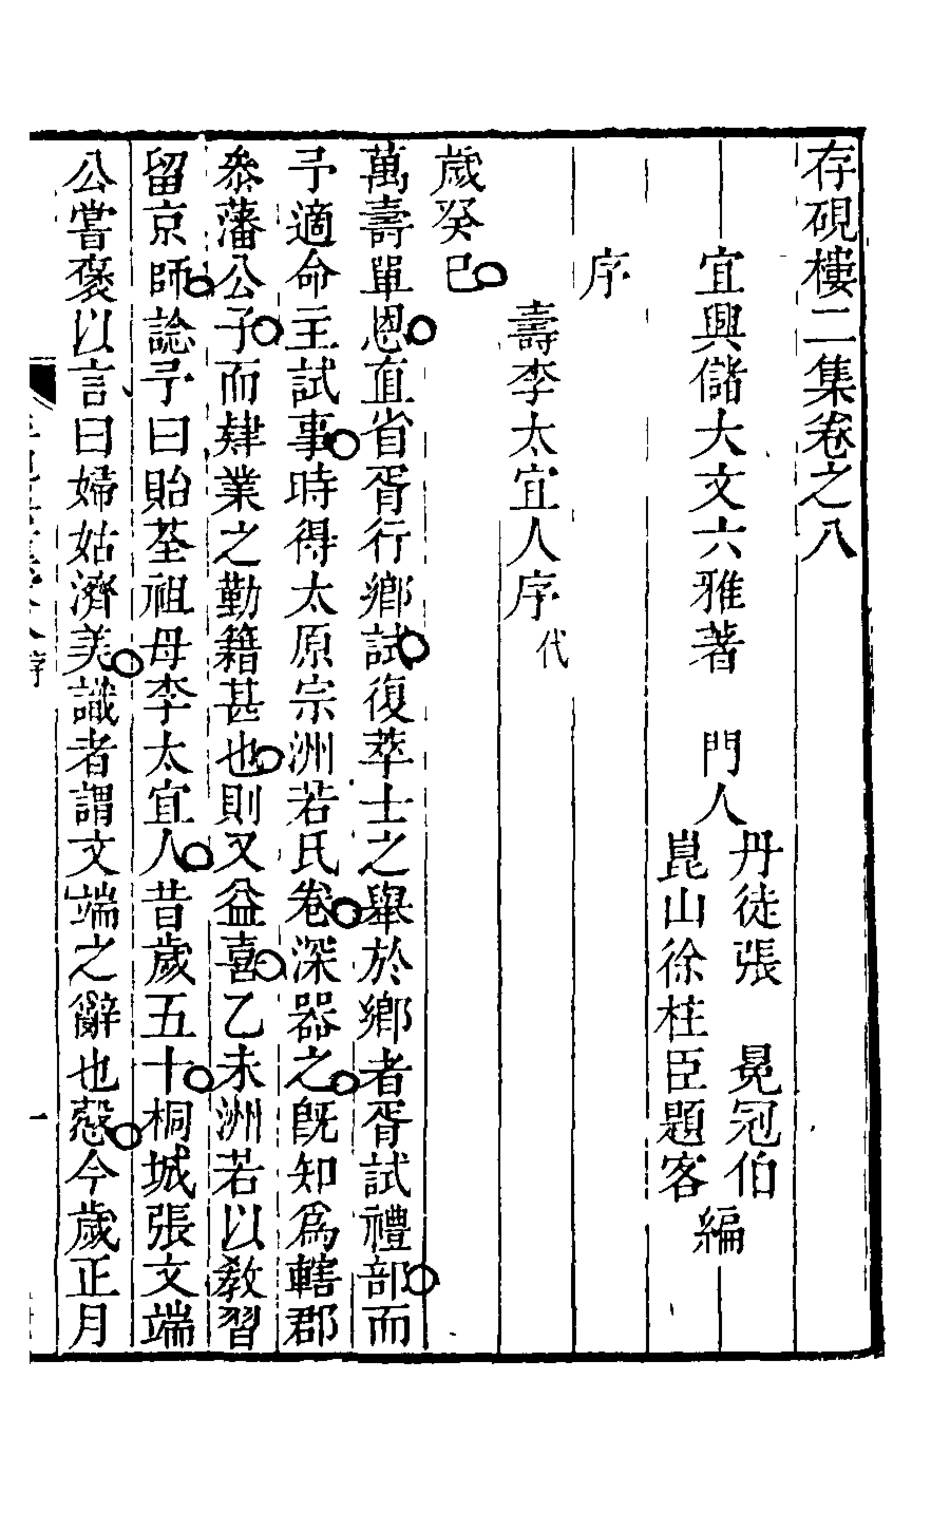 存硯樓二集卷之八
宜興儲大文六雅著　門人
丹徒張　冕冠伯
崑山徐柱臣題客
編
序
壽李太宜人序代
歲癸巳
萬壽單恩直省胥行鄉試復萃士之舉於鄉者胥試禮部而
予適命主試事時得太原宗洲若氏卷深器之旣知爲轄郡
叅藩公子而肄業之勤籍甚也則又益喜乙未洲若以敎習
留京師諗予曰貽荃祖母李太宜人昔歲五十桐城張文端
公嘗褒以言曰婦姑濟美識者謂文端之辭也慤今歲正月
序
一